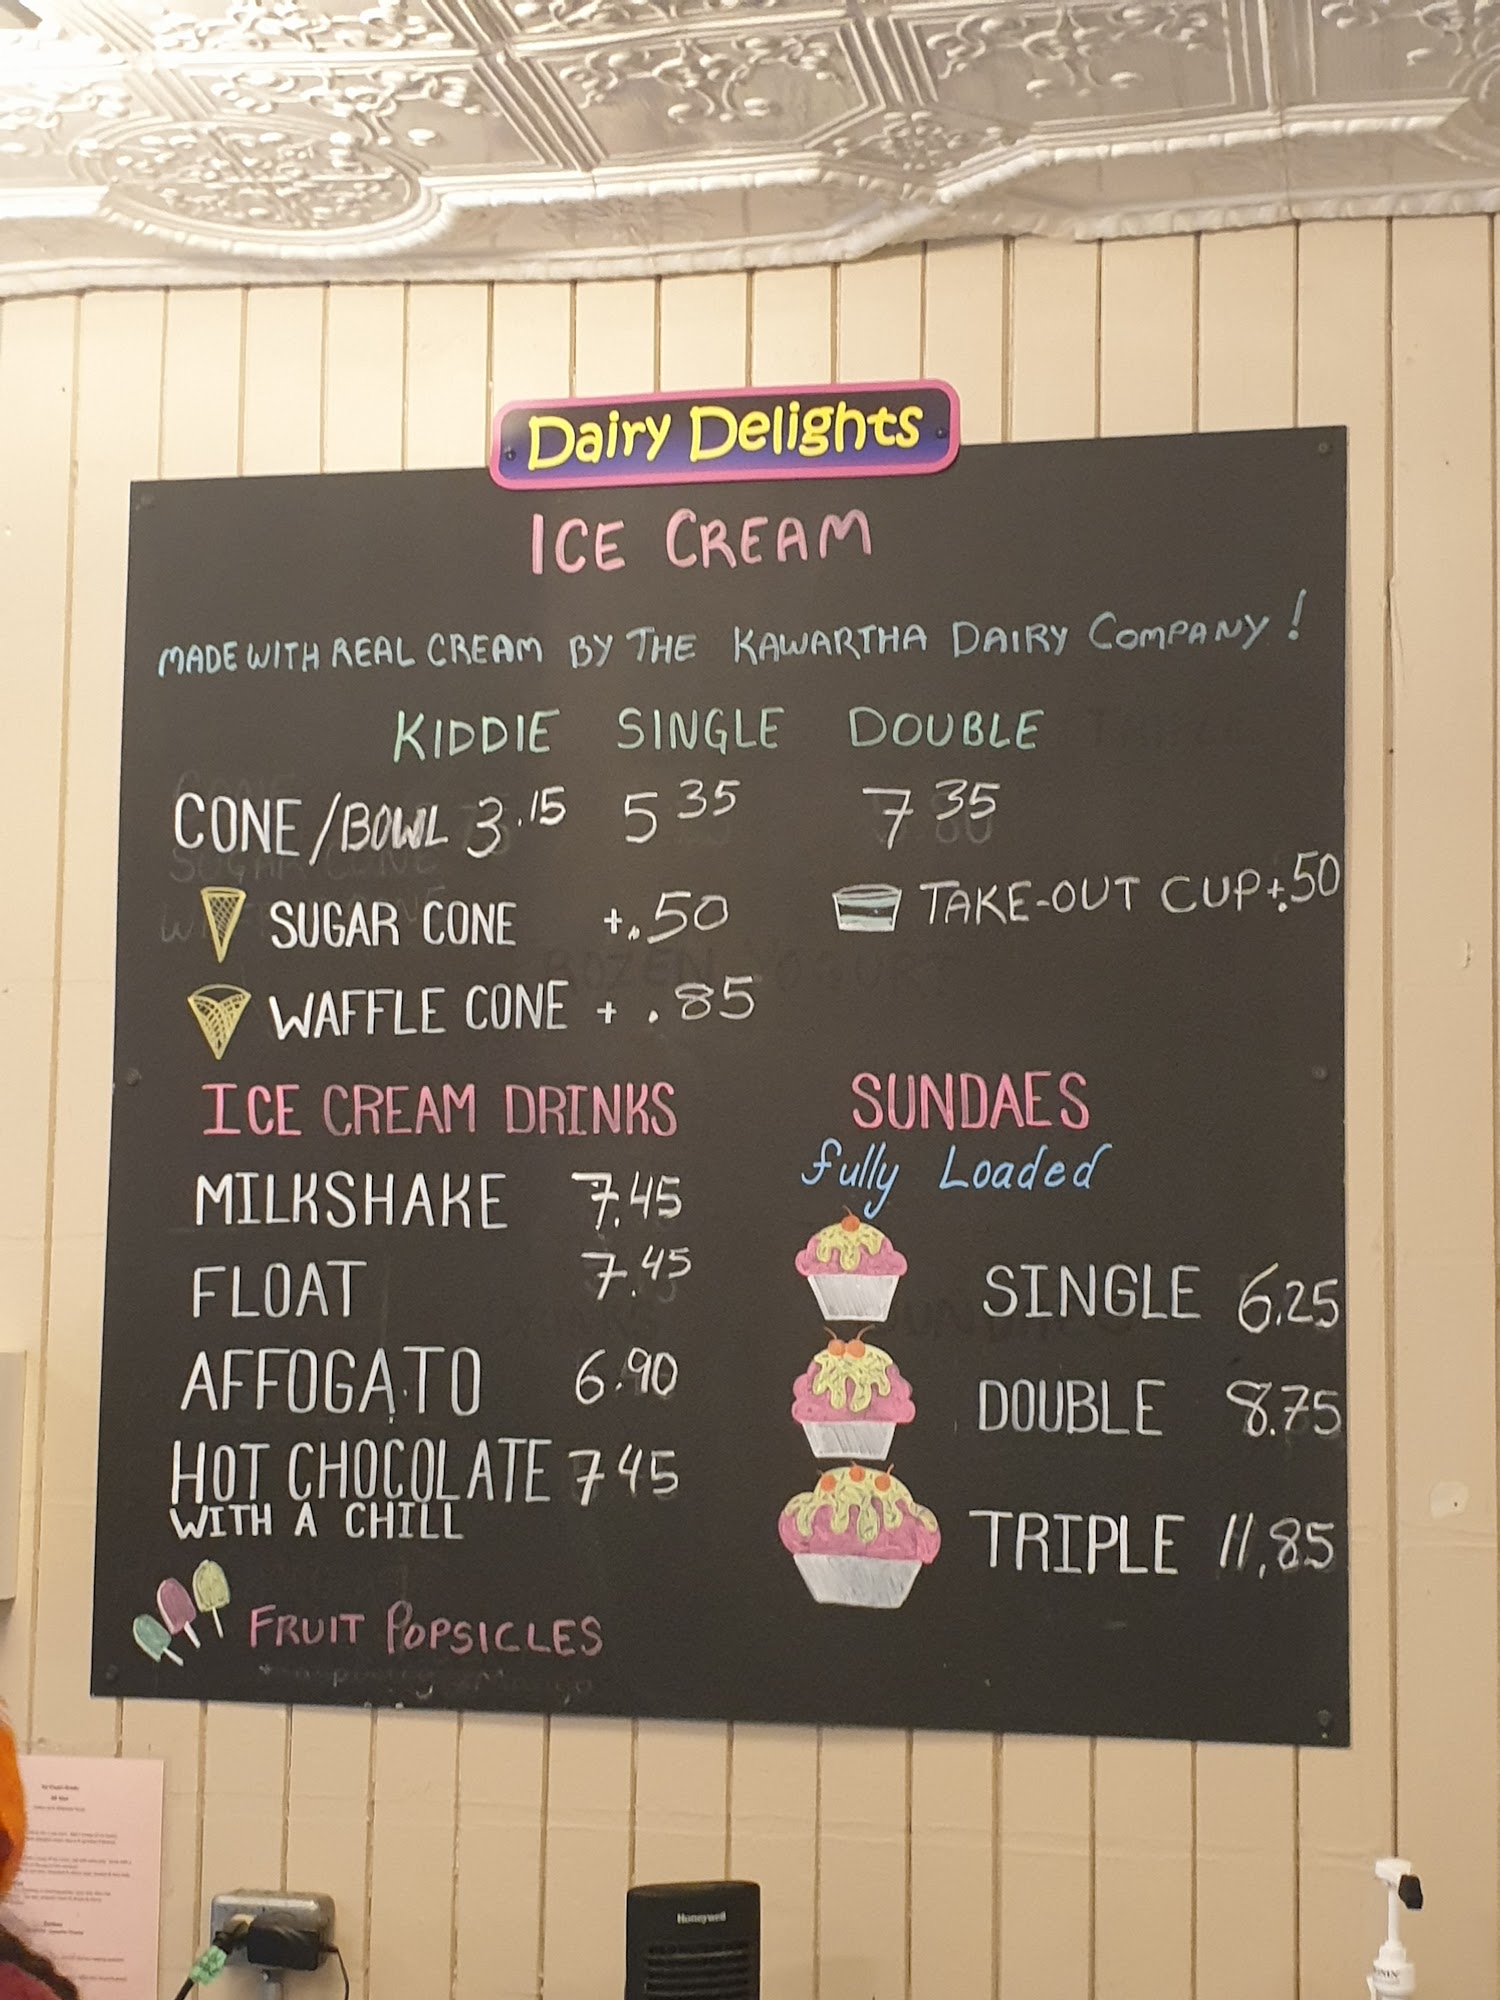 Dairy Delights
ICE CREAM
MADE WITH REAL CREAM BY THE KAWARTHA DAIRY COMPANY!
KIDDIE SINGLE DOUBLE
CONE/BOWL 3.15 5 35 7 35
SUGAR CONE +.50
TAKE-OUT CUP +.50
WAFFLE CONE + .85
ICE CREAM DRINKS
MILKSHAKE 7.45
FLOAT 7.45
AFFOGATO 6.90
HOT CHOCOLATE 7 45
WITH A CHILL
FRUIT POPSICLES
SUNDAES
fully Loaded
SINGLE 6.25
DOUBLE 8.75
TRIPLE 11.85
Honeywell